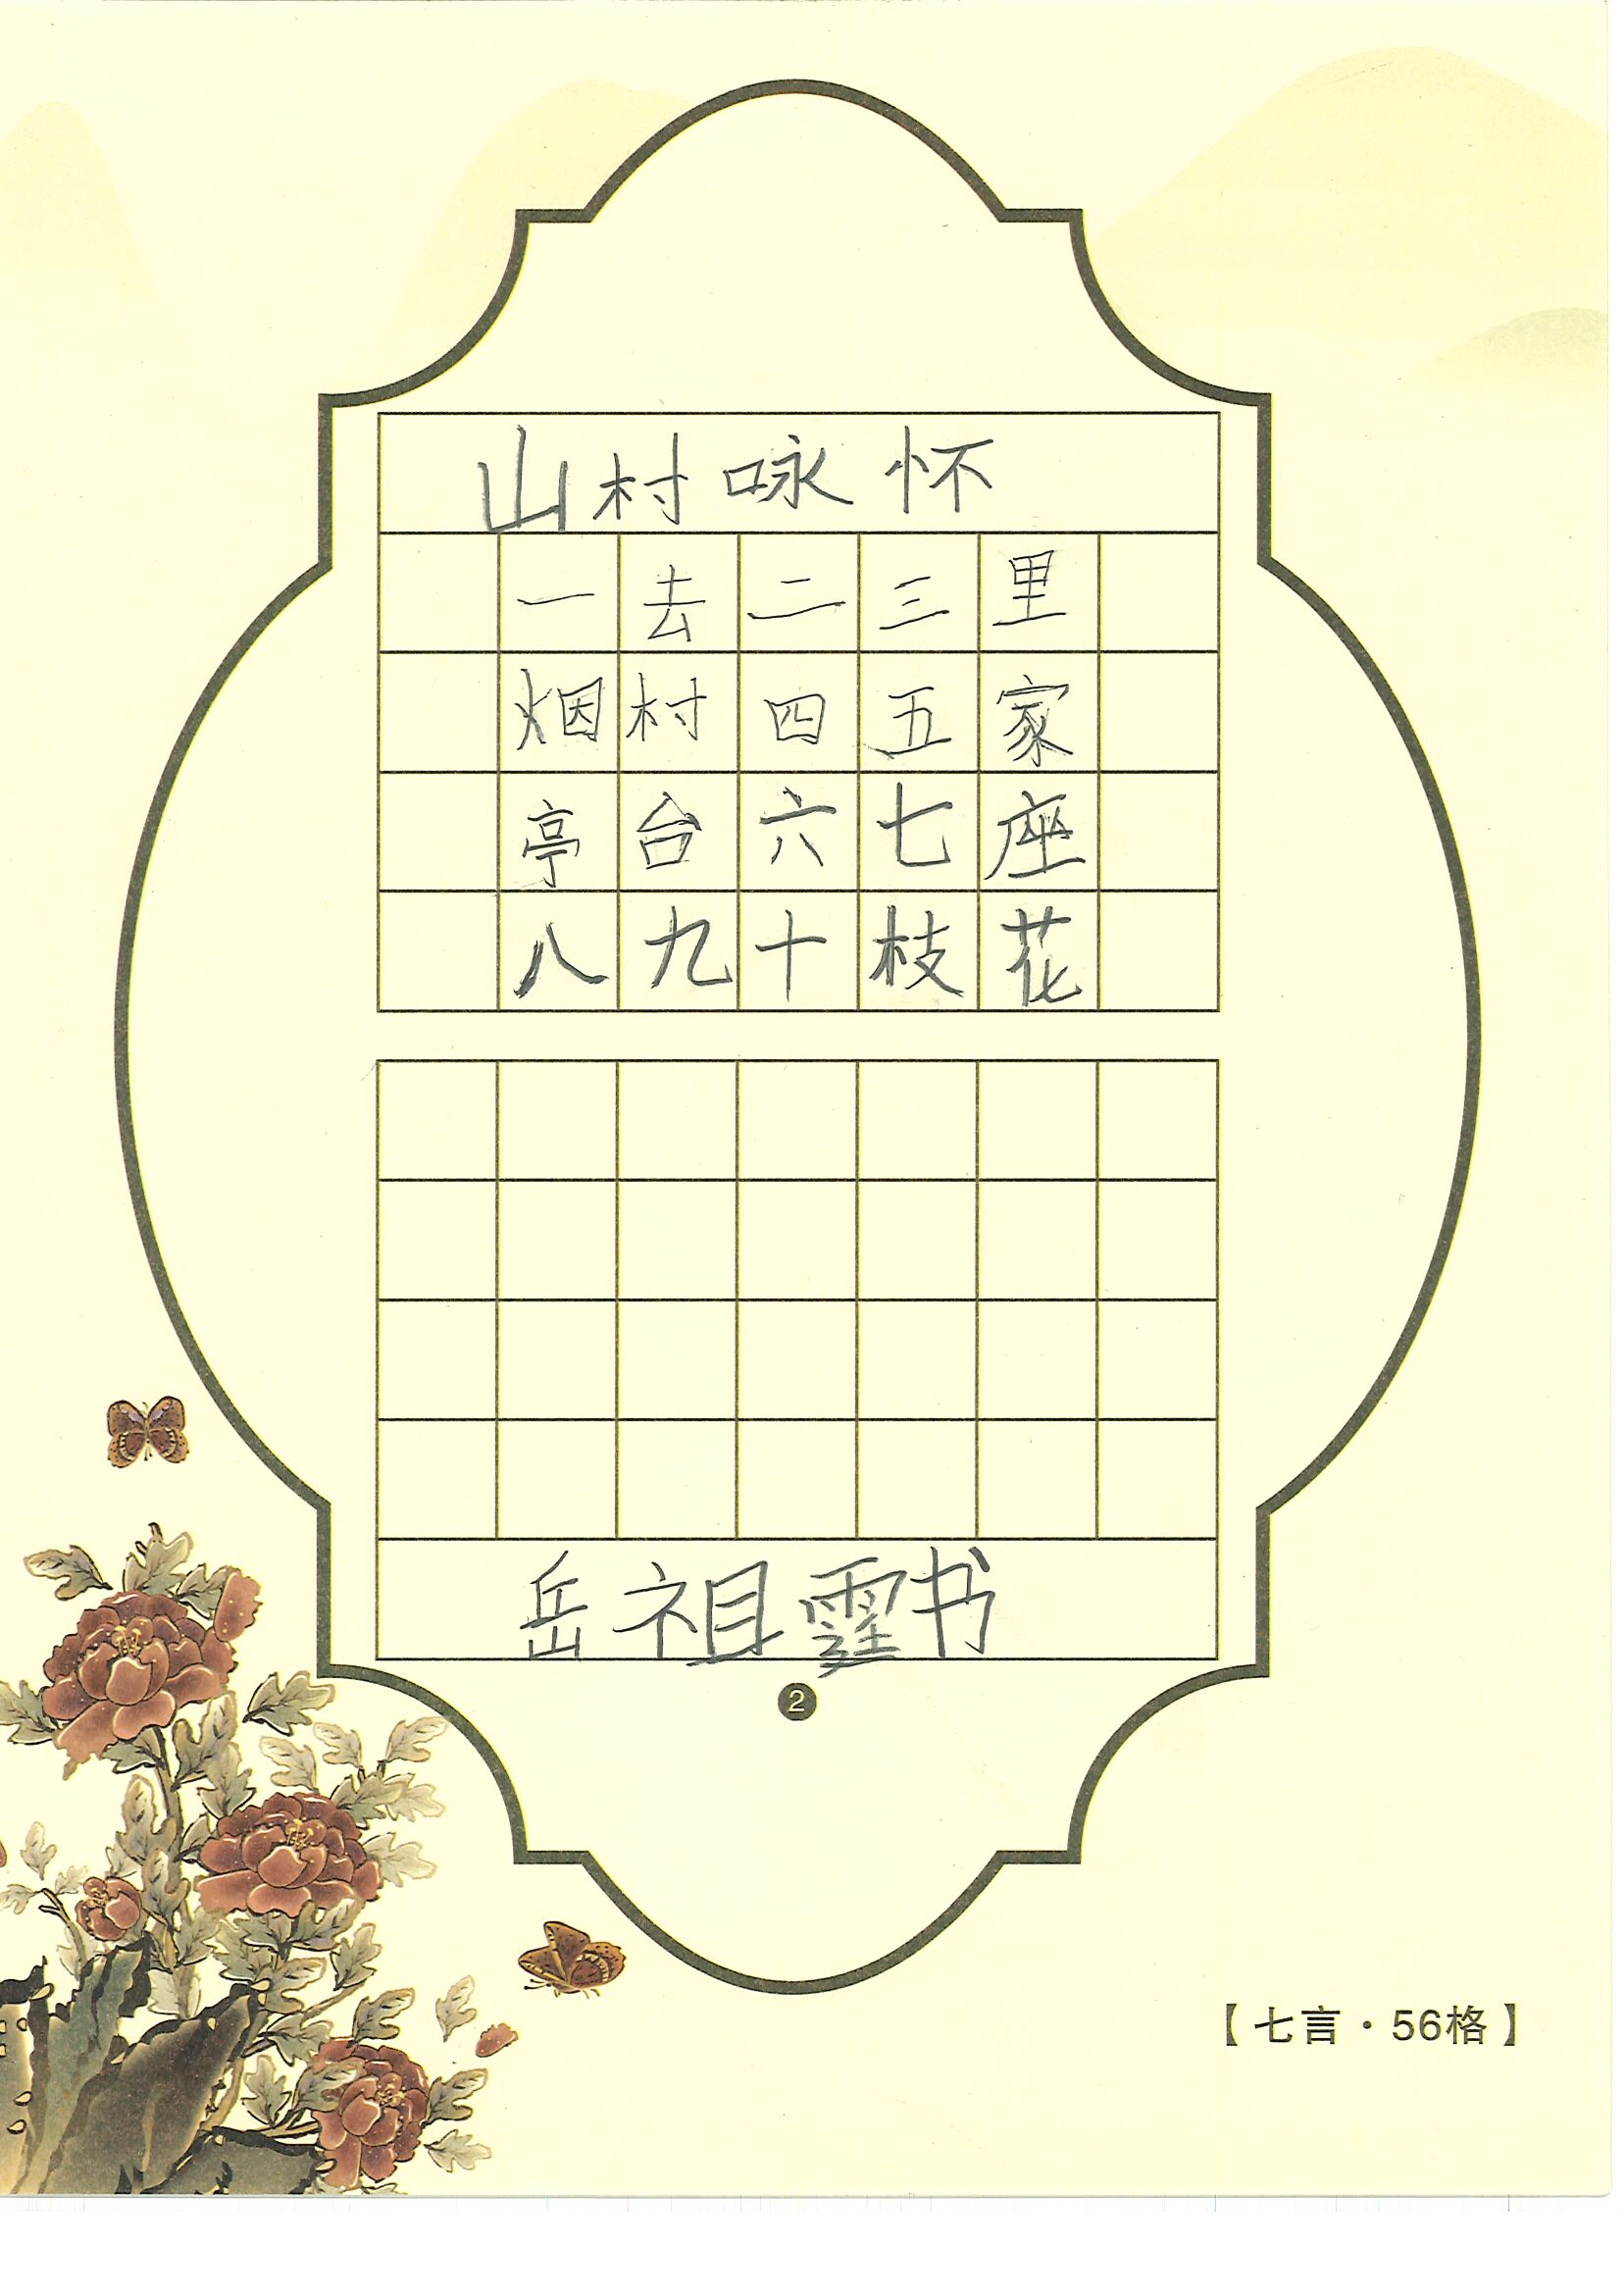 山村咏怀
一去二三里
烟村四五家
亭台六七座
八九十枝花
岳祖霆书
2
【七言·56格】